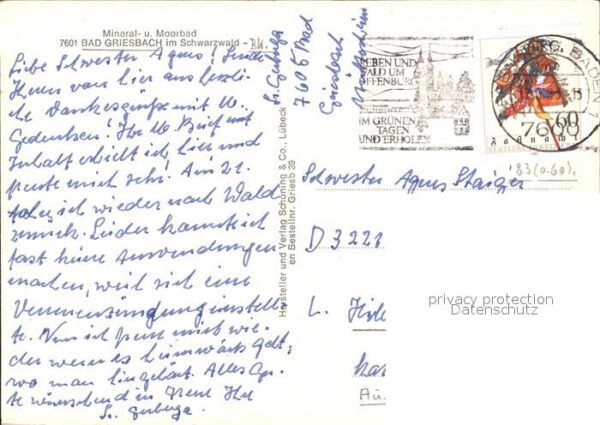 Mineral- u. Moorbad
7601 BAD GRIESBACH im Schwarzwald - BW.
Liebe Schwester Agnes! Sende
Ihnen von hier aus herzli-
che Dankesgrüße mit lb.
Gedenken! Ihr lb. Brief mit
Inhalt erhielt ich hier und
freute mich sehr! Am 21.
fahre ich wieder nach Wald
zurück. Leider konnte ich
fast keine Anwendungen
machen, weil sich eine
Venenentzündung einstell-
te. Nun ich freue mich wie-
der wenn es heimwärts geht,
wo man hingehört. Alles Gu-
te wünschend in Treue Ihre
Sr. Gerberga.
Sr. Gerberga
7605 Bad
Griesbach
Hersteller und Verlag Schöning & Co., Lübeck
en Bestellnr Griesb 39
LEBEN UND
WALD UM
OFFENBURG
IM GRÜNEN
TAGEN
UND ERHOLEN
BADEN
1
60
'83 (0.60)
Schwester Agnes Staiger
D 3221
L.
privacy protection
Datenschutz
Au.